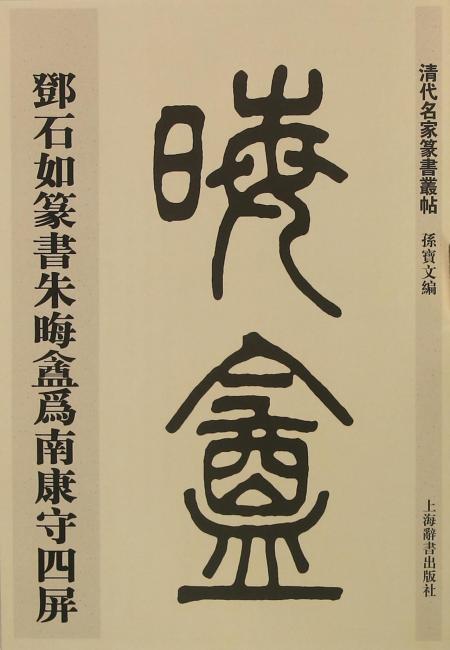 清代名家篆書叢帖
孫寶文編
上海辭書出版社
晦盦
鄧石如篆書朱晦盦爲南康守四屏